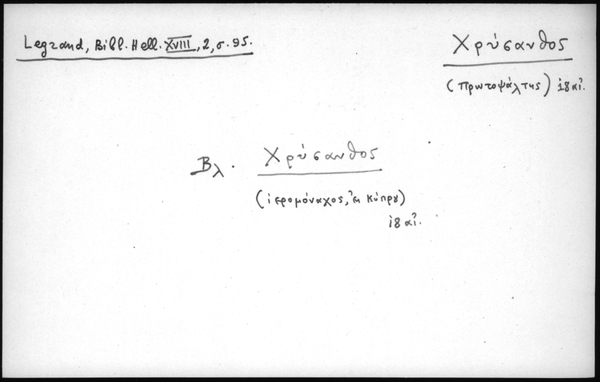 Legrand, Bibl. Hell. XVIII, 2, σ. 95.
Χρύσανθος
(Πρωτοψάλτης) 18 αἰ.
Βλ. Χρύσανθος
(ἱερομόναχος, ἐκ Κύπρου)
18 αἰ.